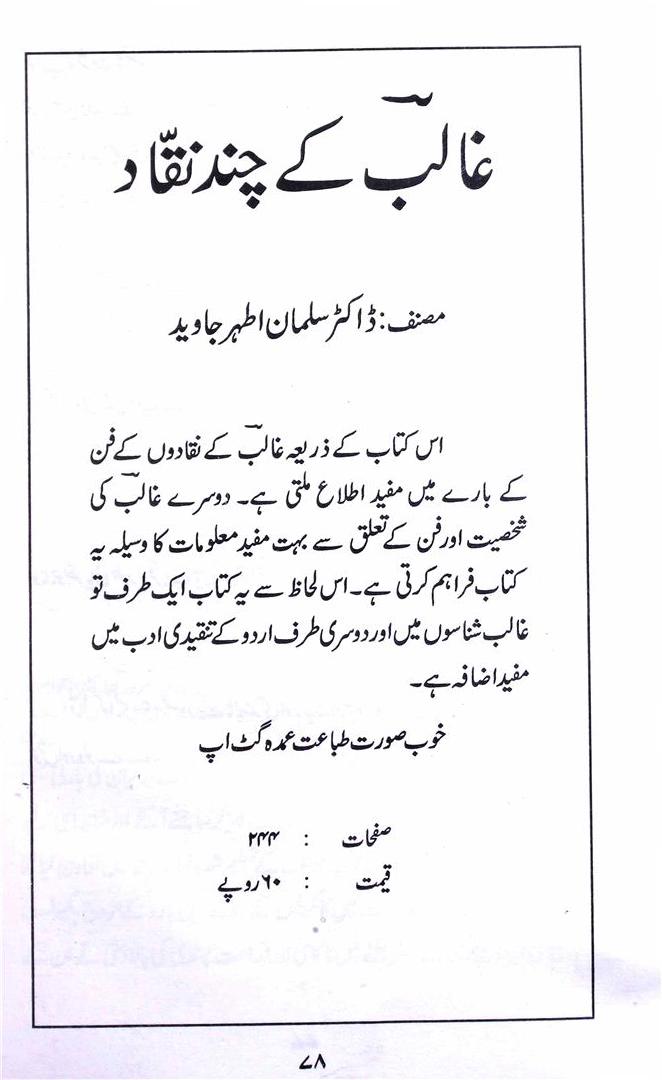 غالبؔ کے چند نقّاد
مصنف: ڈاکٹر سلمان اطہر جاوید
اس کتاب کے ذریعہ غالبؔ کے نقادوں کے فن
کے بارے میں مفید اطلاع ملتی ہے۔ دوسرے غالبؔ کی
شخصیت اور فن کے تعلق سے بہت مفید معلومات کا وسیلہ یہ
کتاب فراہم کرتی ہے۔ اس لحاظ سے یہ کتاب ایک طرف تو
غالب شناسوں میں اور دوسری طرف اردو کے تنقیدی ادب میں
مفید اضافہ ہے۔
خوب صورت طباعت عمدہ گٹ اپ
صفحات : ۲۴۴
قیمت : ۶۰ روپے
۷۸